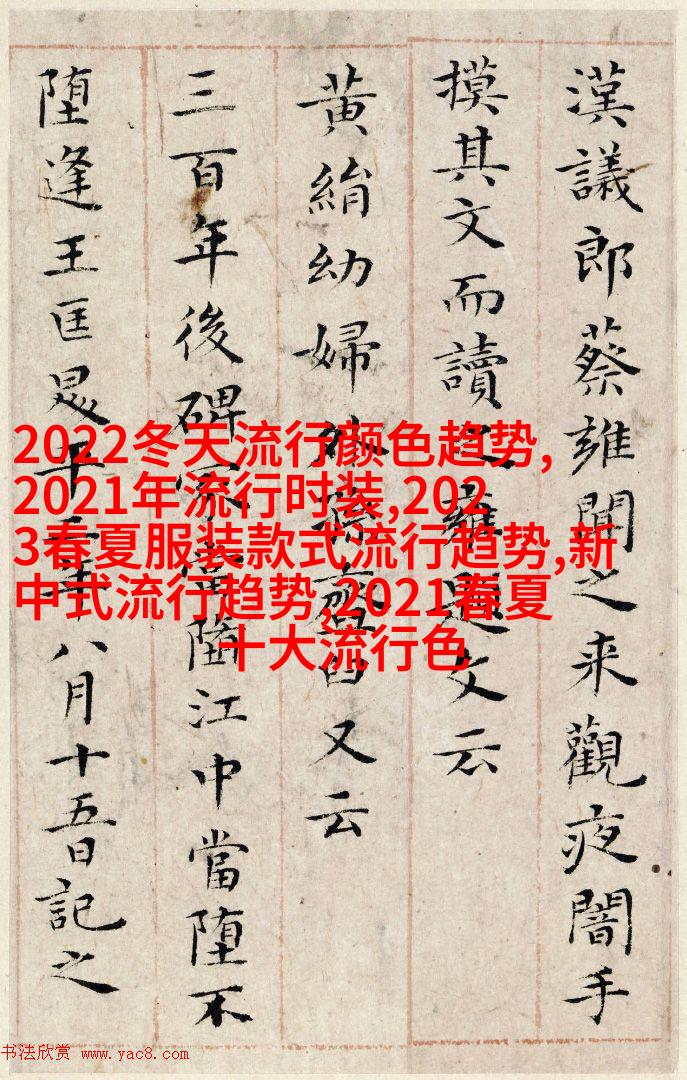 漢議郎蔡雍聞之来觀夜闇手
摸其文而讀之雍題文云
黄絹幼婦外孫臼又云
三百年後碑冢當江中當堕不
堕逢王匡年八月十五日記之
2022冬天流行颜色趋势,
2021年流行时装,202
3春夏服装款式流行趋势,新
中式流行趋势,2021春夏
十大流行色
书法欣赏 www.yac8.com